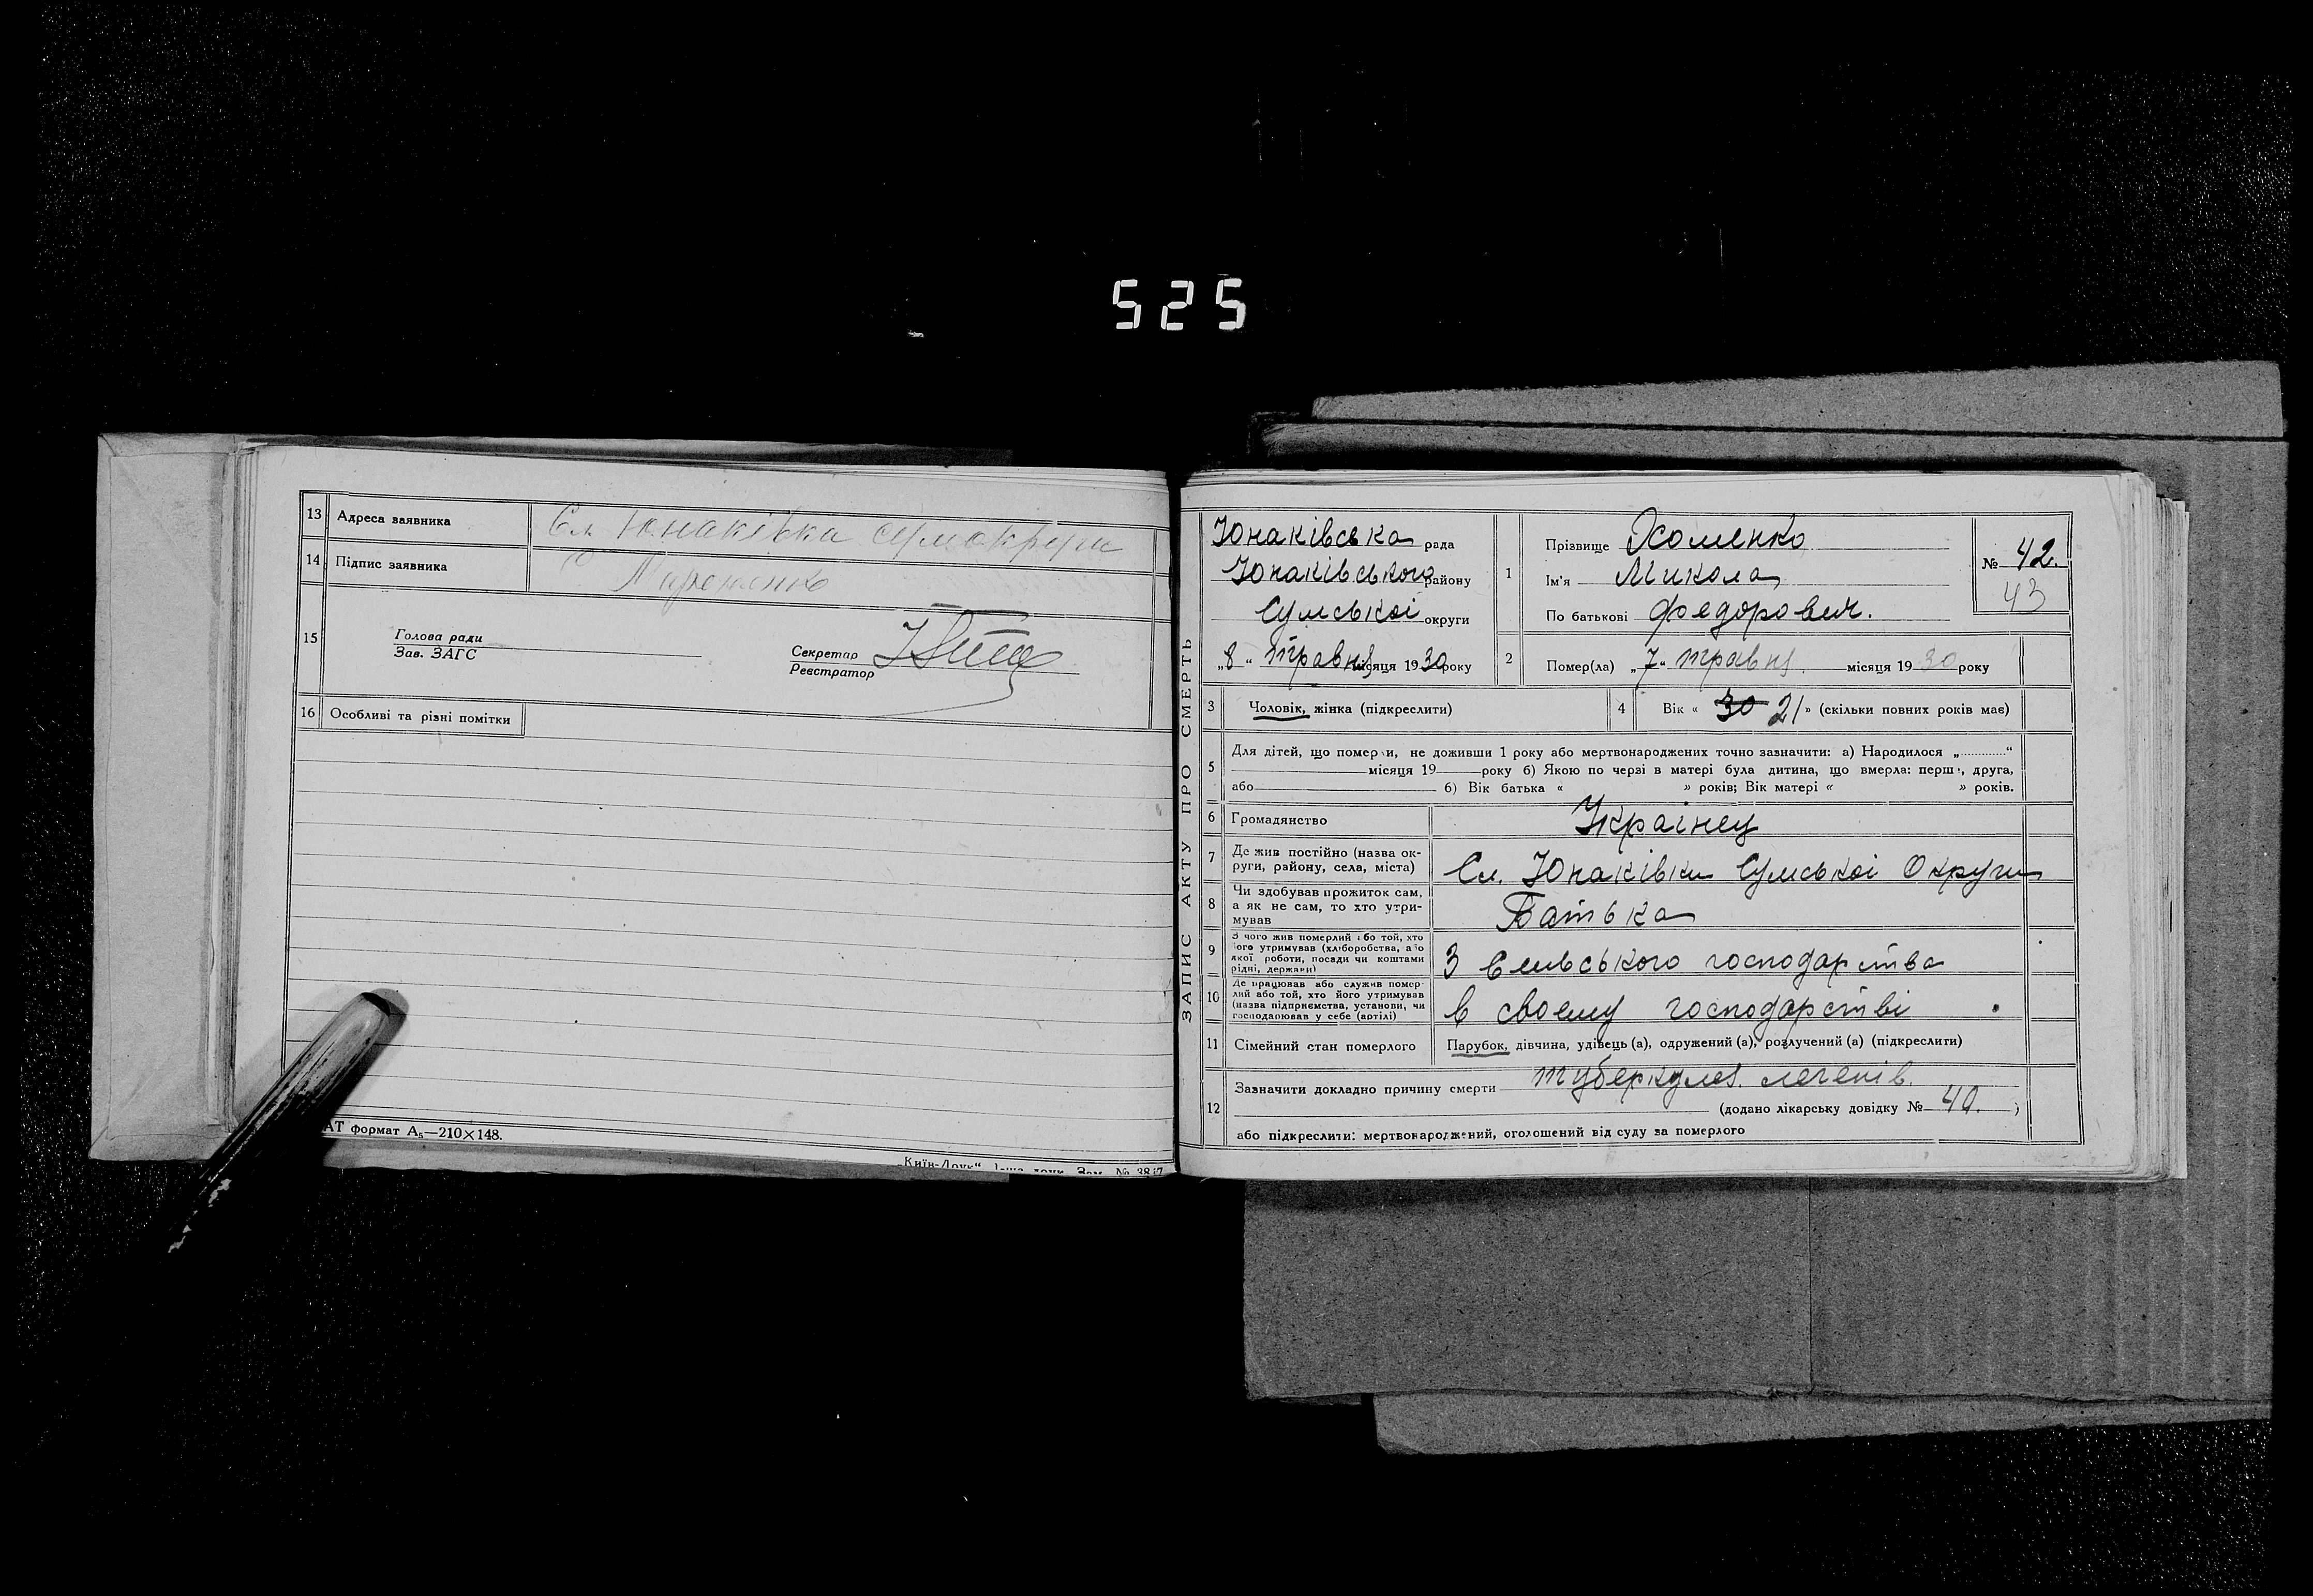 525
13 Адреса заявника Сл. Юнаківка Сумокруги
14 Підпис заявника
15 Голова ради
Зав. ЗАГС
Секретар
Реєстратор
16 Особливі та різні помітки
АТ формат А₅—210×148.
„Київ-Друк“
ЗАПИС АКТУ ПРО СМЕРТЬ
Юнаківська рада
Юнаківського району
Сумської округи
„8“ травня місяця 1930 року
1 Прізвище Хоменко
Ім'я Микола
По батькові Федорович.
№ 42.
43
2 Помер(ла) „7“ травня місяця 1930 року
3 Чоловік, жінка (підкреслити)
4 Вік « 30 21 » (скільки повних років має)
5 Для дітей, що померли, не доживши 1 року або мертвонароджених точно зазначити: а) Народилося „ “
місяця 19 року б) Якою по черзі в матері була дитина, що вмерла: перша, друга,
або б) Вік батька « » років; Вік матері « » років.
6 Громадянство Українец
7 Де жив постійно (назва округи, району, села, міста) Сл. Юнаківки Сумської Округи
8 Чи здобував прожиток сам, а як не сам, то хто утримував Батька
9 З чого жив померлий або той, хто його утримував (хліборобства, або якої роботи, посади чи коштами рідні, держави) З Сильського господарства
10 Де працював або служив померлий або той, хто його утримував (назва підприємства, установи, чи господарював у себе (артілі) в своєму господарстві
11 Сімейний стан померлого Парубок, дівчина, удівець (а), одружений (а), розлучений (а) (підкреслити)
12 Зазначити докладно причину смерти туберкулез. легенів.
(додано лікарську довідку № 40. )
або підкреслити: мертвонароджений, оголошений від суду за померлого